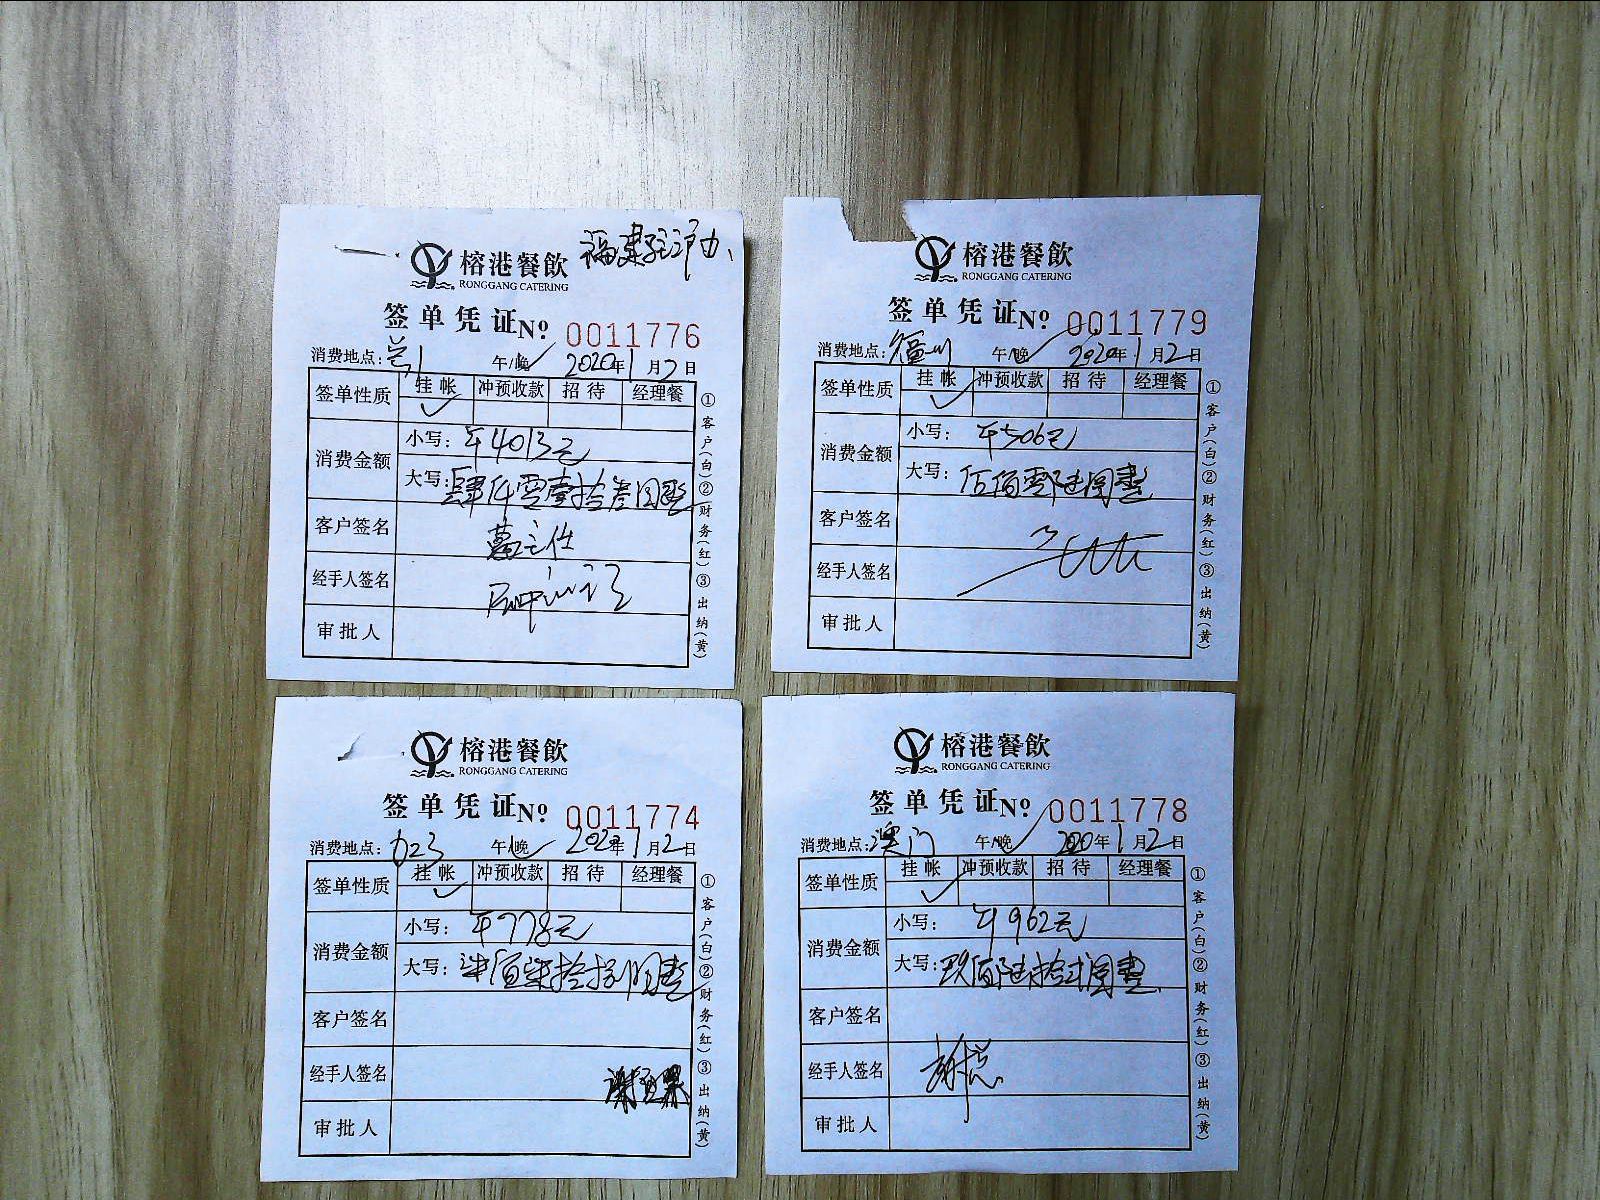 福建驻沪办
榕港餐飲
RONGGANG CATERING
签单凭证 Nº 0011776
消费地点: 兰1 午/晚 2020年1月2日
签单性质 挂帐 冲预收款 招待 经理餐
消费金额 小写: ¥4013元
大写: 肆仟零壹拾叁圆整
客户签名
主任
经手人签名
审批人
①客户(白)②财务(红)③出纳(黄)
榕港餐飲
RONGGANG CATERING
签单凭证 Nº 0011779
消费地点: 福州 午/晚 2020年1月2日
签单性质 挂帐 冲预收款 招待 经理餐
消费金额 小写: ¥506元
大写: 伍佰零陆圆整
客户签名
经手人签名
审批人
①客户(白)②财务(红)③出纳(黄)
榕港餐飲
RONGGANG CATERING
签单凭证 Nº 0011774
消费地点: 午/晚 2020年1月2日
签单性质 挂帐 冲预收款 招待 经理餐
消费金额 小写: ¥778元
大写: 柒佰柒拾捌圆整
客户签名
经手人签名
审批人
①客户(白)②财务(红)③出纳(黄)
榕港餐飲
RONGGANG CATERING
签单凭证 Nº 0011778
消费地点: 澳门 午/晚 2020年1月2日
签单性质 挂帐 冲预收款 招待 经理餐
消费金额 小写: ¥962元
大写: 玖佰陆拾贰圆整
客户签名
经手人签名 谢总
审批人
①客户(白)②财务(红)③出纳(黄)